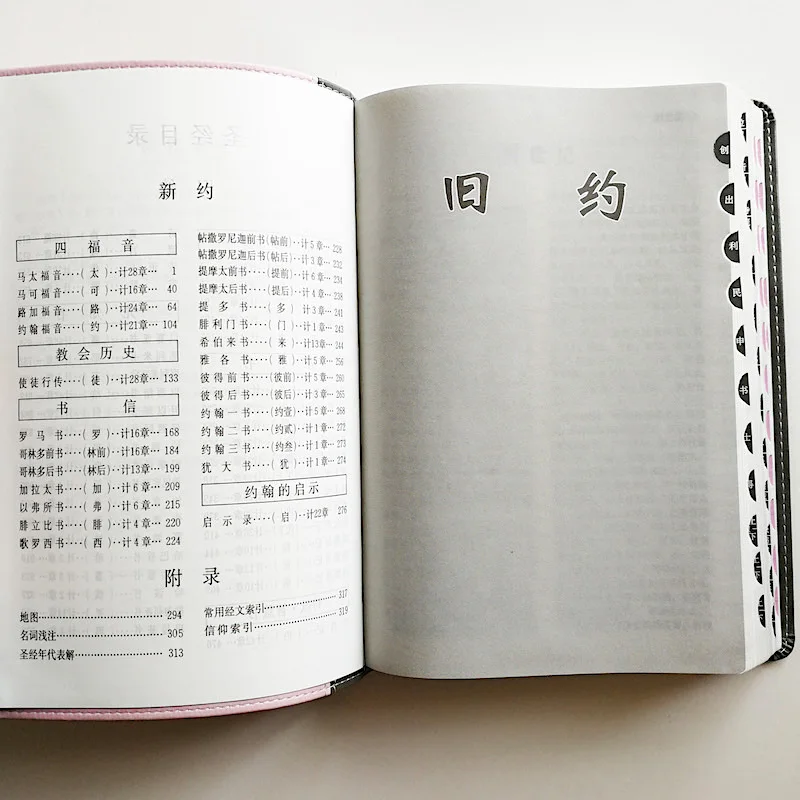 新 约
四 福 音
马太福音‥‥( 太 )‥计28章… 1
马可福音‥‥( 可 )‥计16章… 40
路加福音‥‥( 路 )‥计24章… 64
约翰福音‥‥( 约 )‥计21章… 104
教 会 历 史
使徒行传‥‥( 徒 )‥计28章… 133
书 信
罗 马 书‥‥( 罗 )‥计16章… 168
哥林多前书‥‥(林前)‥计16章… 184
哥林多后书‥‥(林后)‥计13章… 199
加拉太书‥‥( 加 )‥计 6 章… 209
以弗所书‥‥( 弗 )‥计 6 章… 215
腓立比书‥‥( 腓 )‥计 4 章… 220
歌罗西书‥‥( 西 )‥计 4 章… 224
帖撒罗尼迦前书(帖前)‥计 5 章… 228
帖撒罗尼迦后书(帖后)‥计 3 章… 232
提摩太前书‥‥(提前)‥计 6 章… 234
提摩太后书‥‥(提后)‥计 4 章… 238
提 多 书‥‥( 多 )‥计 3 章… 241
腓利门书‥‥( 门 )‥计 1 章… 243
希伯来书‥‥( 来 )‥计13章… 244
雅 各 书‥‥( 雅 )‥计 5 章… 256
彼得前书‥‥(彼前)‥计 5 章… 260
彼得后书‥‥(彼后)‥计 3 章… 265
约翰一书‥‥(约壹)‥计 5 章… 268
约翰二书‥‥(约贰)‥计 1 章… 272
约翰三书‥‥(约叁)‥计 1 章… 273
犹 大 书‥‥( 犹 )‥计 1 章… 274
约翰的启示
启 示 录‥‥( 启 )‥计22章 276
附 录
地图………………………… 294
名词浅注…………………… 305
圣经年代表解……………… 313
常用经文索引……………… 317
信仰索引…………………… 319
旧 约
创
出
利
民
申
书
士
得